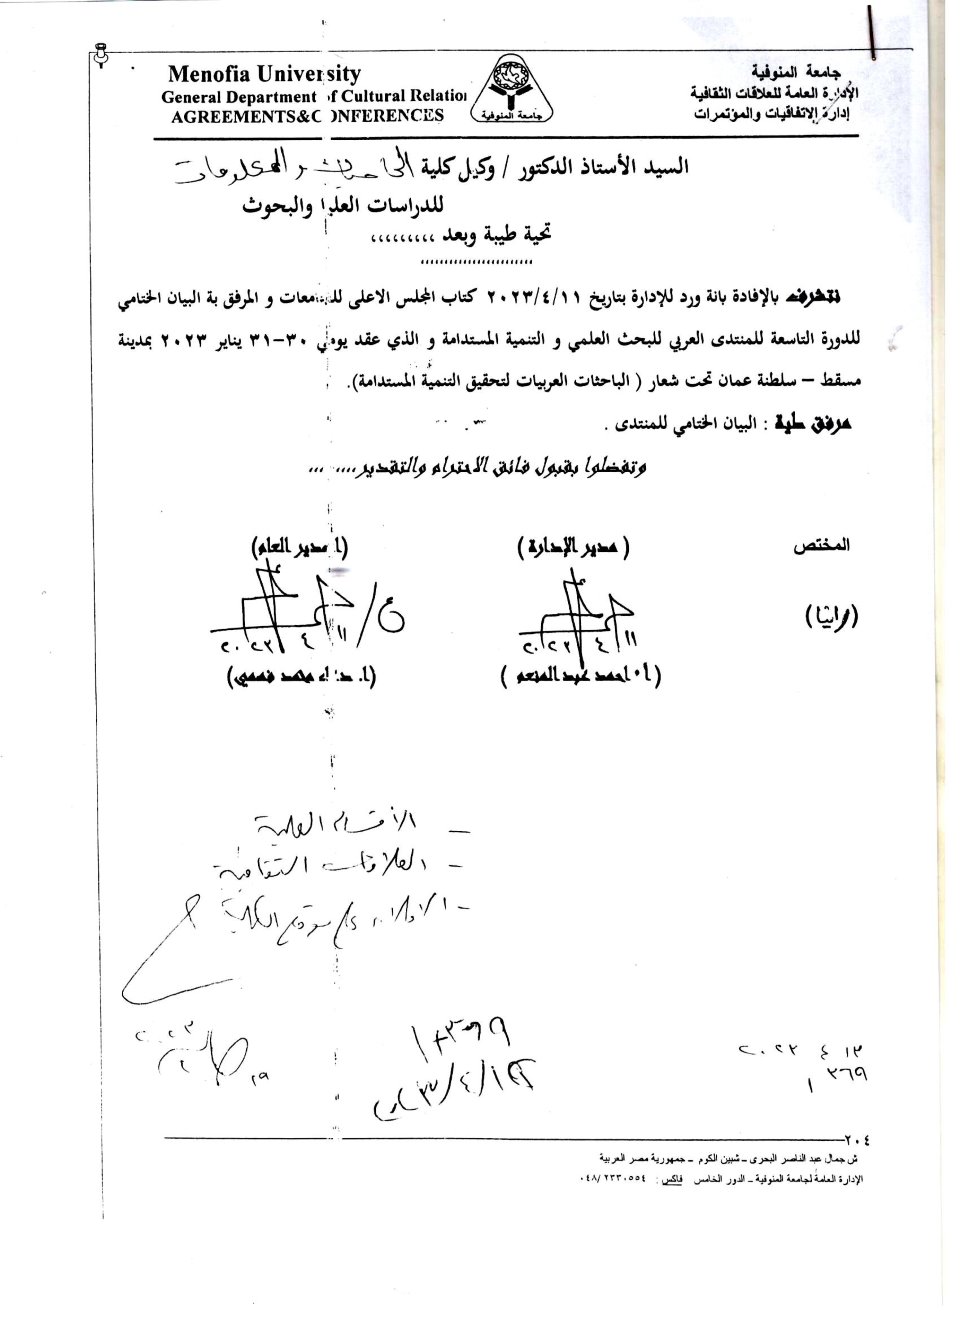 Menofia University
General Department of Cultural Relation
AGREEMENTS&CONFERENCES
جامعة المنوفية
جامعة المنوفية
الإدارة العامة للعلاقات الثقافية
إدارة الاتفاقيات والمؤتمرات
السيد الأستاذ الدكتور / وكيل كلية الحاسبات والمعلومات
للدراسات العليا والبحوث
تحية طيبة وبعد ،،،،،،،،،
نتشرف بالإفادة بانة ورد للإدارة بتاريخ ٢٠٢٣/٤/١١ كتاب المجلس الاعلى للجامعات و المرفق بة البيان الختامي
للدورة التاسعة للمنتدى العربي للبحث العلمي و التنمية المستدامة و الذي عقد يومي ٣٠-٣١ يناير ٢٠٢٣ بمدينة
مسقط – سلطنة عمان تحت شعار ( الباحثات العربيات لتحقيق التنمية المستدامة).
مرفق طية : البيان الختامي للمنتدى .
وتفضلوا بقبول فائق الاحترام والتقدير......
المختص
( مدير الإدارة )
(ا مدير العام)
(رانيا)
١١ ٤ ٢٠٢٣
ع/
١١ ٤ ٢٠٢٣
(أ٠ احمد عبد المنعم )
محمد فهمي)
- الأقسام العلمية
- العلاقات الثقافية
- الاعلان على موقع الكلية
٢٠٢٣
١٣ ٤ ٢٠٢٣
٣٦٩
١
٢٠٤
ش جمال عبد الناصر البحرى – شبين الكوم – جمهورية مصر العربية
الإدارة العامة لجامعة المنوفية – الدور الخامس فاكس : ٠٤٨/٢٢٣٠٥٥٤